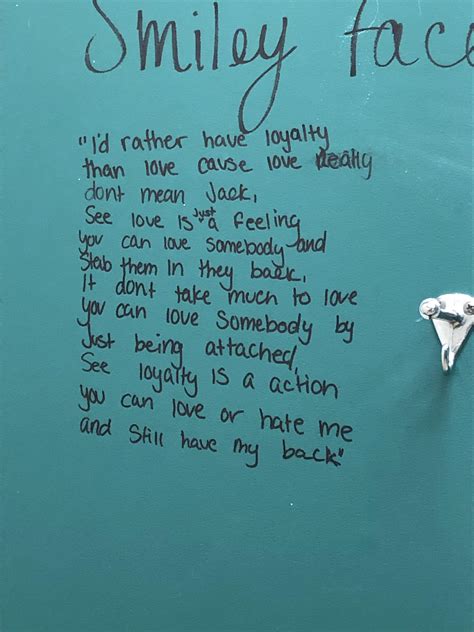 Smiley face
"I'd rather have loyalty
than love cause love really
dont mean Jack,
See love is just a feeling
you can love somebody and
Stab them in they back,
It dont take much to love
you can love Somebody by
Just being attached,
See loyalty is a action
you can love or hate me
and Still have my back"